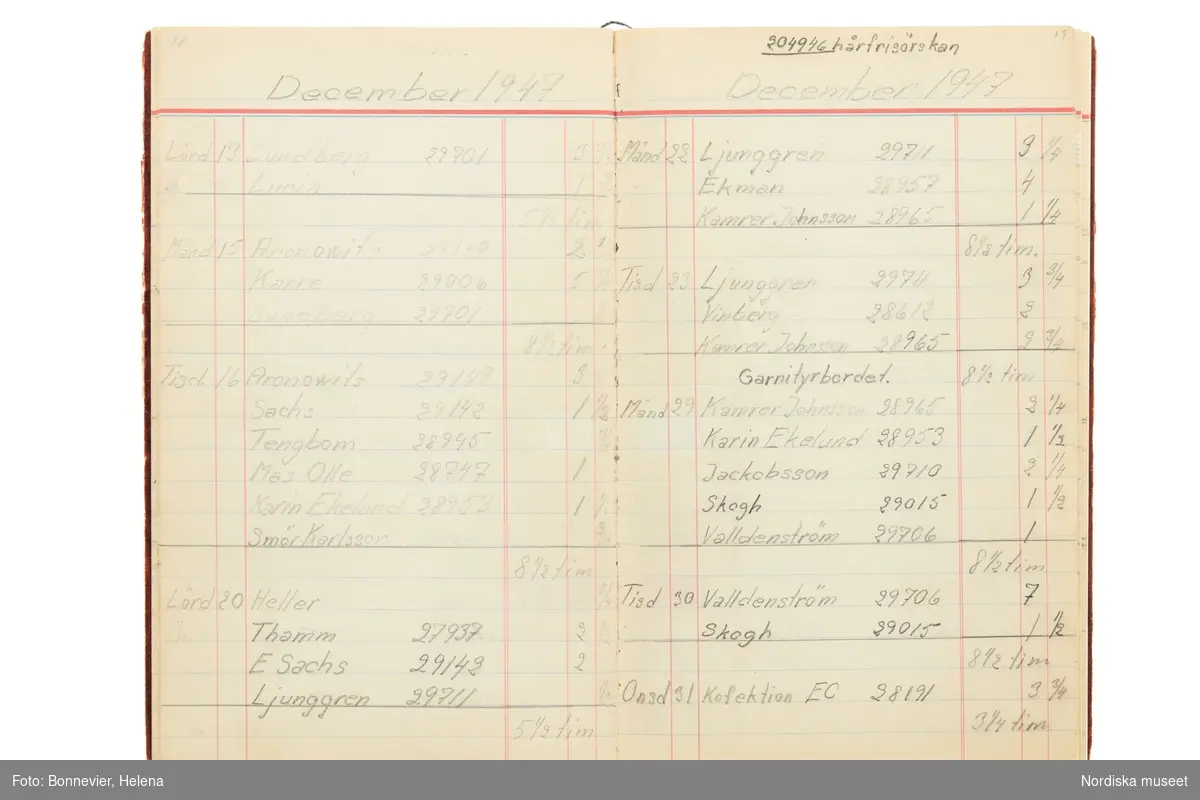 18
December 1947
Lörd 13 Sundberg 29701 3
Lucia 1
5 1/2 tim
Månd 15 Aronowits 29149 2 1/2
Karre 29006 5
Sundberg 29701
8 1/2 tim.
Tisd. 16 Aronowits 29149 3
Sachs 29142 1 1/2
Tengbom 28945
Mas Olle 28747 1
Karin Ekelund 28953 1
Smör Karlsson
8 1/2 tim
Lörd 20 Heller
Thamm 27937 2
E Sachs 29142 2
Ljunggren 29711
5 1/2 tim
19
204946 hårfrisörskan
December 1947
Månd 22 Ljunggren 29711 3 1/4
Ekman 28957 4
Kamrer Johnsson 28965 1 1/4
8 1/2 tim.
Tisd 23 Ljunggren 29711 3 3/4
Vinberg 28612 2
Kamrer Johnsson 28965 2 3/4
Garnityrbordet. 8 1/2 tim
Månd 29 Kamrer Johnsson 28965 2 1/4
Karin Ekelund 28953 1 1/2
Jackobsson 29710 2 1/4
Skogh 29015 1 1/2
Valldenström 29706 1
8 1/2 tim
Tisd 30 Valldenström 29706 7
Skogh 29015 1 1/2
8 1/2 tim
Onsd 31 Kofektion EC 28191 3 3/4
3 1/4 tim
Foto: Bonnevier, Helena
Nordiska museet